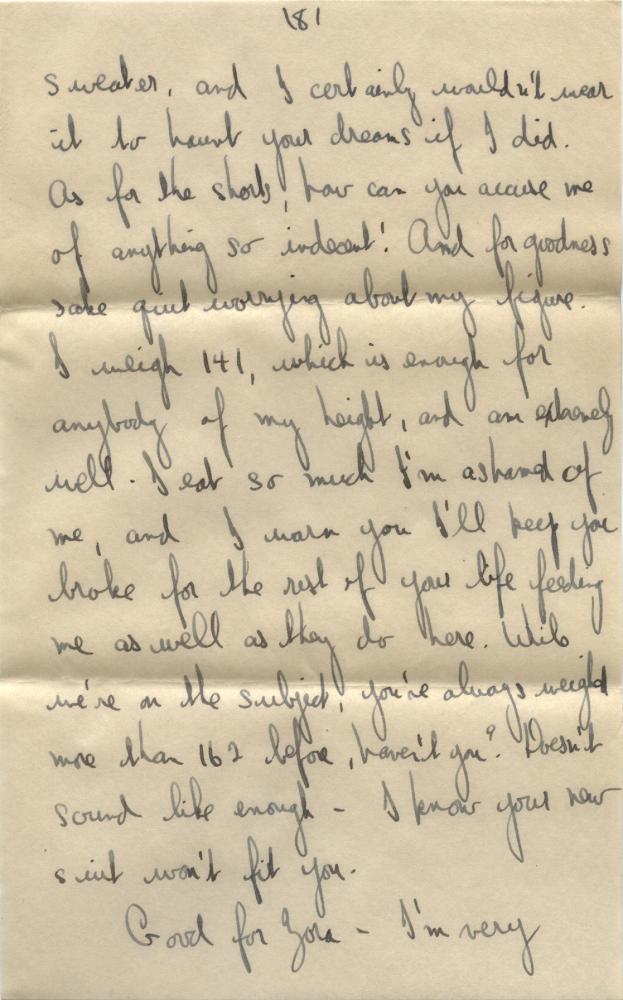 181
sweater, and I certainly wouldn't wear
it to haunt your dreams if I did.
As for the shorts, how can you accuse me
of anything so indecent! And for goodness
sake quit worrying about my figure.
I weigh 141, which is enough for
anybody of my height, and am extremely
well. I eat so much I'm ashamed of
me, and I warn you I'll keep you
broke for the rest of your life feeding
me as well as they do here. While
we're on the subject, you've always weighed
more than 162 before, haven't you? Doesn't
sound like enough - I know your new
suit won't fit you.
Good for Zora - I'm very